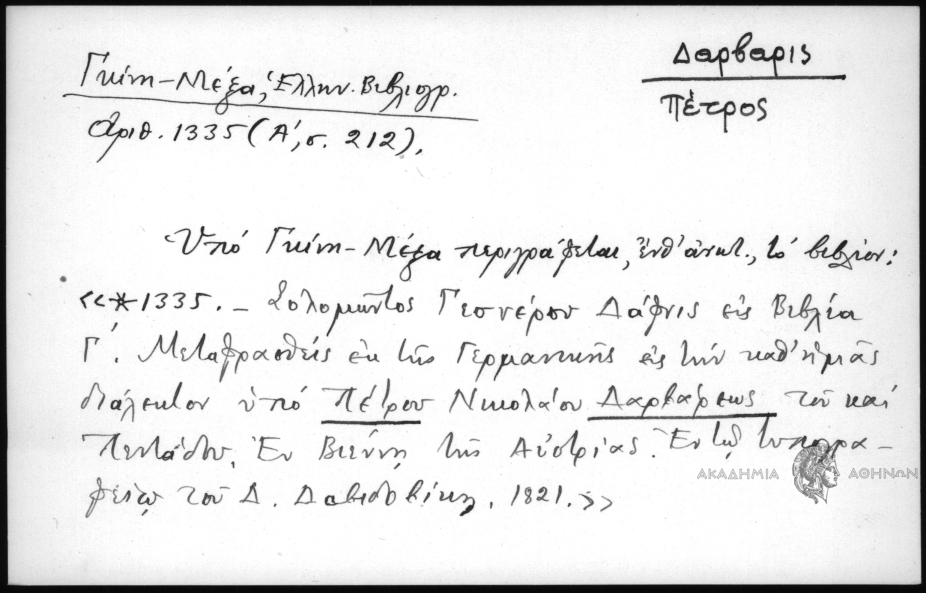 Δαρβαρις
Πέτρος
Γκίνη-Μέξα, Ἑλλην. Βιβλιογρ.
ἀριθ. 1335 (Α', σ. 212).
Ὑπό Γκίνη-Μέξα περιγράφεται, ἔνθ' ἀνωτ., τό βιβλίον:
«*1335. – Σολομῶντος Γεσνέρου Δάφνις εἰς Βιβλία
Γ'. Μεταφρασθείς ἐκ τῆς Γερμανικῆς εἰς τήν καθ' ἡμᾶς
διάλεκτον ὑπό Πέτρου Νικολάου Δαρβάρεως τοῦ καί
Πενταδου. Ἐν Βιέννῃ τῆς Αὐστρίας. Ἐν τῷ τυπογρα-
φείῳ τοῦ Δ. Δαβιδοβίκη, 1821.»
ΑΚΑΔΗΜΙΑ ΑΘΗΝΩΝ